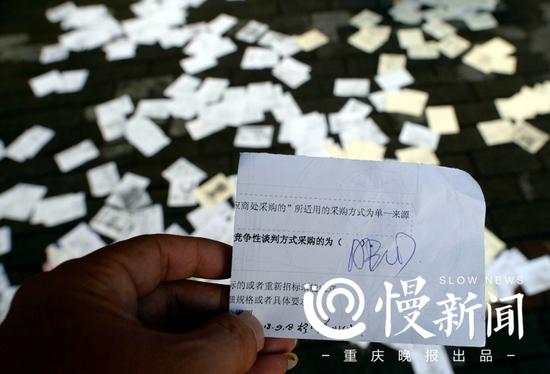 应商处采购的"所适用的采购方式为单一来源
竞争性谈判方式采购的为(
ABCD)
标的或者重新招标未
细规格或者具体要求
SLOW NEWS
慢新闻
重庆晚报出品